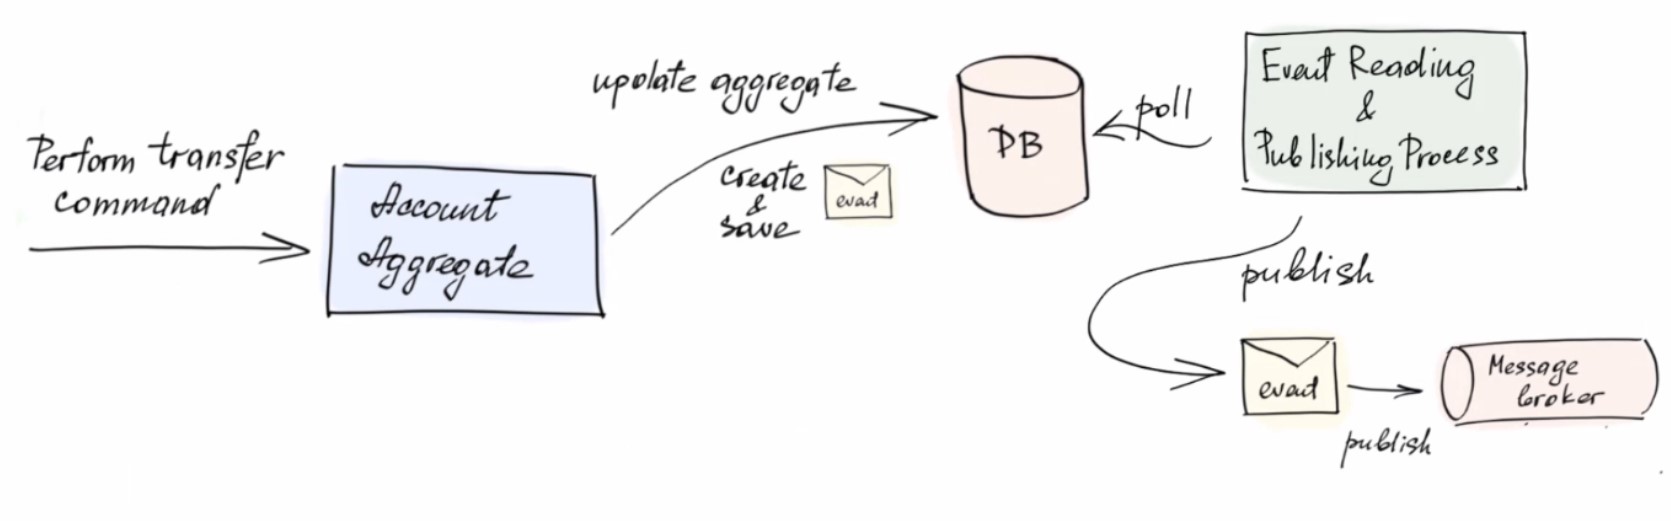 Perform transfer
command
Account
Aggregate
update aggregate
create
&
save
event
DB
poll
Event Reading
&
Publishing Process
publish
event
publish
Message
broker